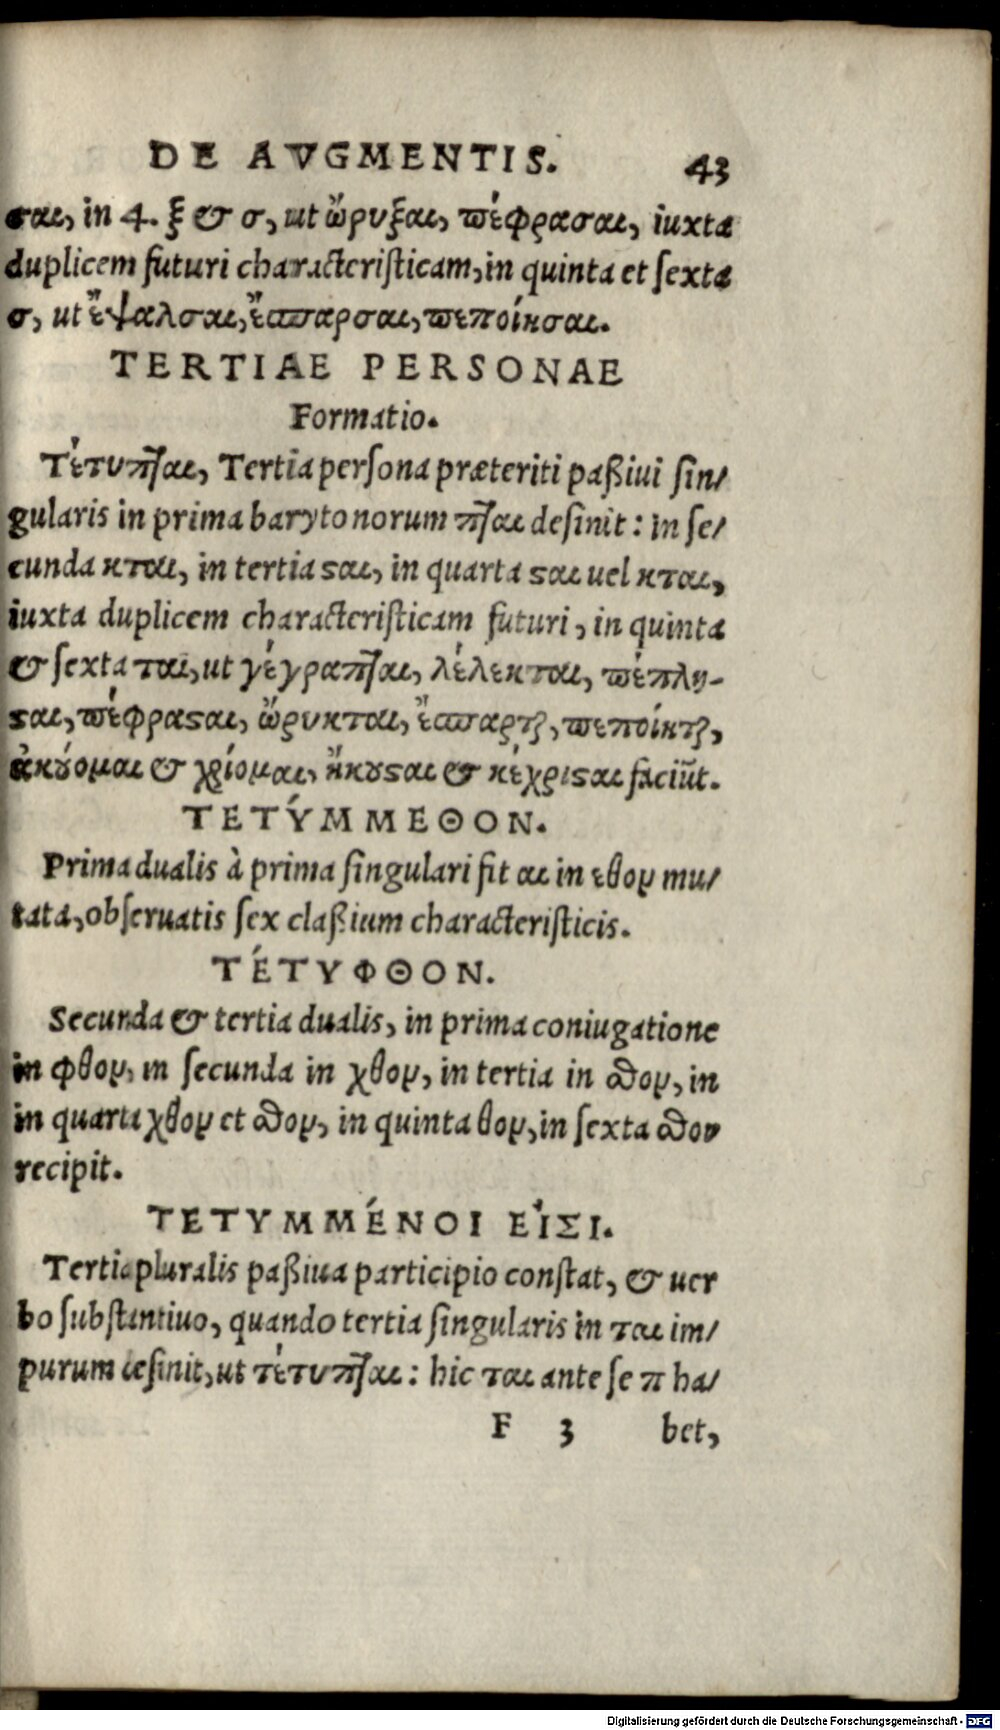 DE AVGMENTIS. 43
σαι, in 4. ξ & σ, ut ὤρυξαι, πέφρασαι, iuxta
duplicem futuri characteriſticam, in quinta et ſexta
σ, ut ἔψαλσαι, ἔσπαρσαι, πεποίησαι.
TERTIAE PERSONAE
Formatio.
Τέτυπται, Tertia perſona præteriti paßiui ſin/
gularis in prima barytonorum πται deſinit: in ſe/
cunda κται, in tertia ϛαι, in quarta ϛαι uel κται,
iuxta duplicem characteriſticam futuri, in quinta
& ſexta ται, ut γέγραπται, λέλεκται, πέπλη-
ϛαι, πέφραϛαι, ὤρυκται, ἔσπαρτꝫ, πεποίητꝫ,
ἀκȣ́ομαι & χρίομαι, ἤκȣϛαι & κέχριϛαι faciūt.
ΤΕΤΎΜΜΕΘΟΝ.
Prima dualis à prima ſingulari fit αι in εθον mu/
tata, obſeruatis ſex claßium characteriſticis.
ΤΈΤΥΦΘΟΝ.
Secunda & tertia dualis, in prima coniugatione
in φθον, in ſecunda in χθον, in tertia in σθον, in
in quarta χθον et σθον, in quinta θον, in ſexta σθον
recipit.
ΤΕΤΥΜΜΈΝΟΙ ΕἸΣΙ.
Tertia pluralis paßiua participio conſtat, & uer
bo ſubſtantiuo, quando tertia ſingularis in ται im/
purum deſinit, ut τέτυπται: hic ται ante ſe π ha/
F 3 bet,
Digitalisierung gefördert durch die Deutsche Forschungsgemeinschaft - DFG